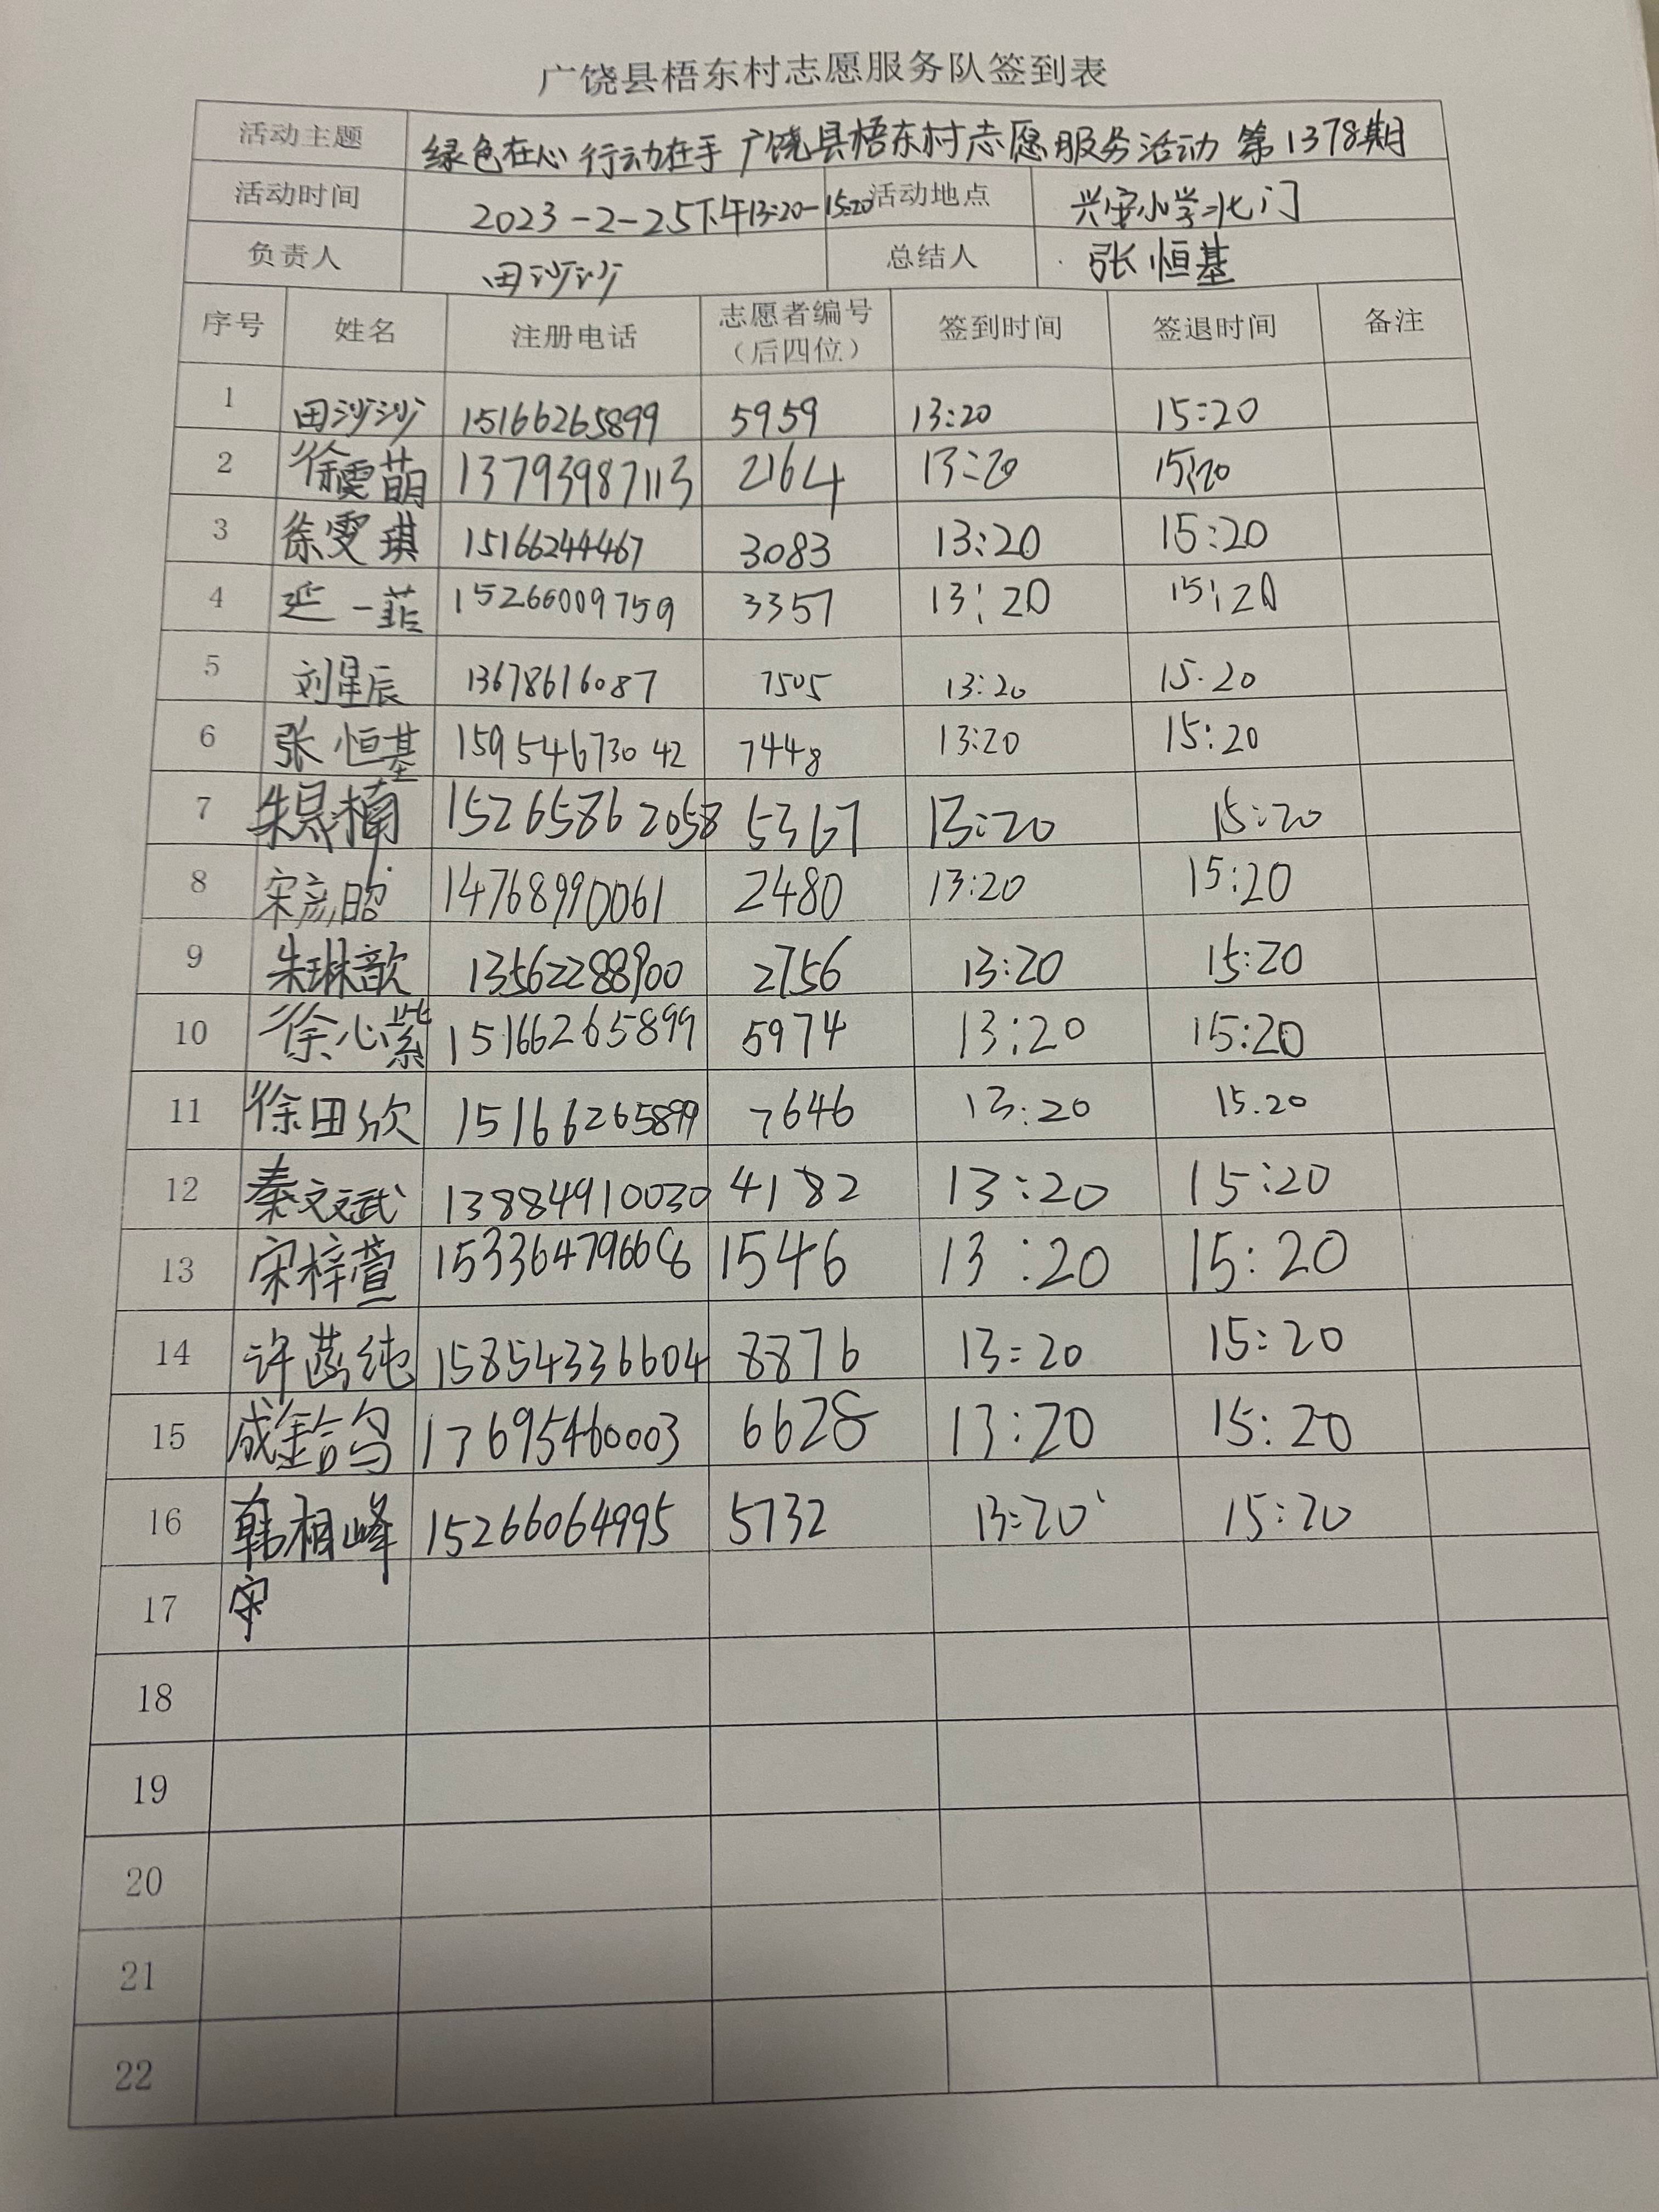 广饶县梧东村志愿服务队签到表
活动主题 绿色在心 行动在手 广饶县梧东村志愿服务活动 第1378期
活动时间 2023-2-25下午13:20-15:20 活动地点 兴安小学北门
负责人 田沙沙 总结人 张恒基
序号 姓名 注册电话 志愿者编号（后四位） 签到时间 签退时间 备注
1 田沙沙 15166265899 5959 13:20 15:20
2 徐雯萌 13793987113 2164 13:20 15:20
3 徐雯琪 15166244467 3083 13:20 15:20
4 延一菲 15266009759 3357 13:20 15:20
5 刘星辰 13678616087 7505 13:20 15:20
6 张恒基 15954673042 7448 13:20 15:20
7 朱晟楠 15265862058 5367 13:20 15:20
8 宋彦昭 14768990061 2480 13:20 15:20
9 朱琳歆 13562288900 2756 13:20 15:20
10 徐心紫 15166265899 5974 13:20 15:20
11 徐田欣 15166265899 7646 13:20 15.20
12 秦文斌 13884910030 4182 13:20 15:20
13 宋梓萱 15336479668 1546 13:20 15:20
14 许 纯 15854336604 8876 13:20 15:20
15 成 17695460003 6628 13:20 15:20
16 韩相峰 15266064995 5732 13:20 15:20
17
18
19
20
21
22